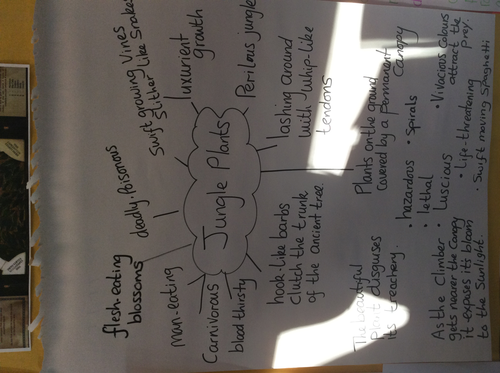 flesh-eating
blossoms
deadly. Poisonous
Swift growing vines
Slither like Snakes
luxurient
growth
Perilous jungle
man-eating
Carnivorous
blood thirsty
Jungle Plants
lashing around
with whip-like
tendons
hook-like barbs
clutch the trunk
of the ancient tree.
Plants on the ground
covered by a Permanent
Canopy
The beautiful
Plant disguises
its treachery.
• hazardous
• Spirals
• lethal
• Luscious
• Vivacious Colours
attract the
prey.
• Life-threatening
• Swift moving Spaghetti
As the Climber
gets nearer the Canopy
it exposes its bloom
to the Sunlight.